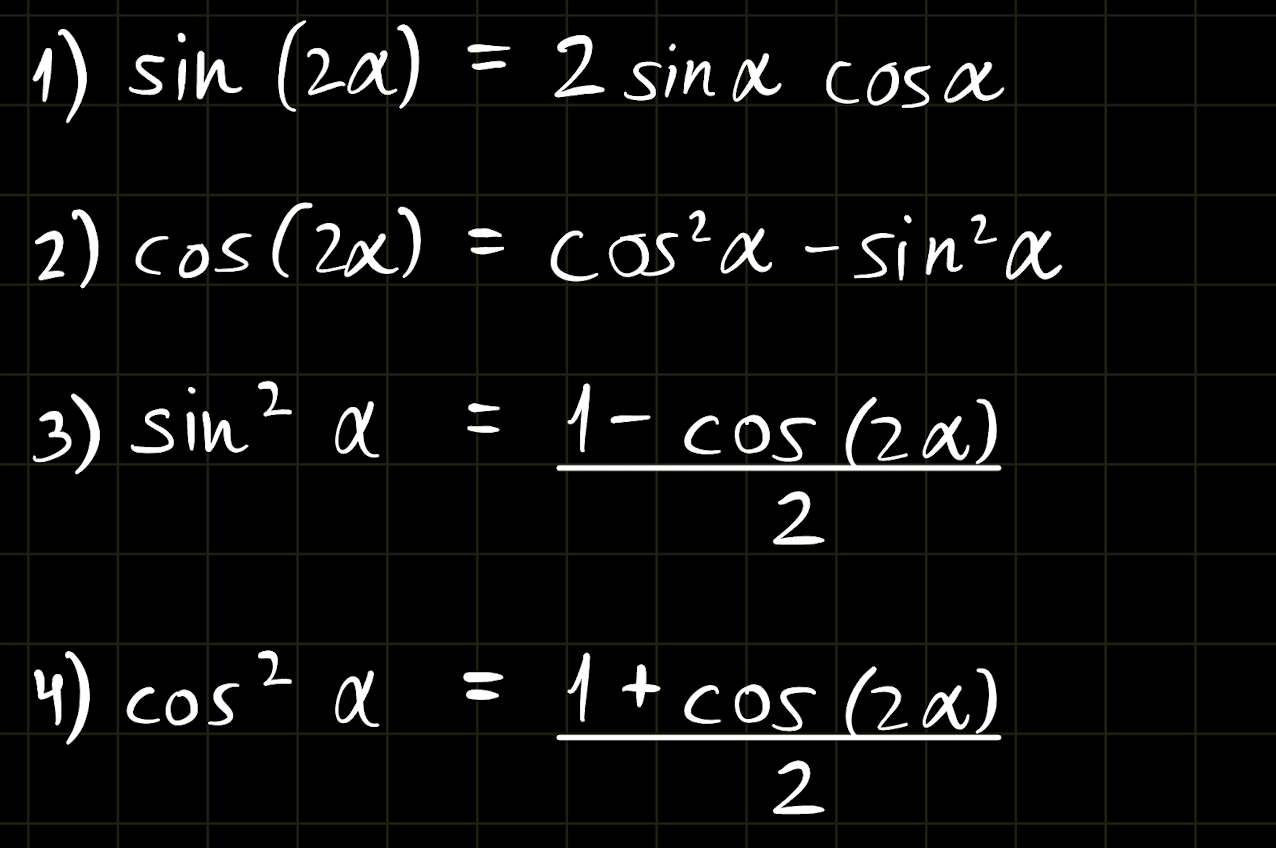 1) sin (2α) = 2 sin α cos α
2) cos (2α) = cos²α - sin²α
3) sin² α = (1 - cos (2α)) / 2
4) cos² α = (1 + cos (2α)) / 2